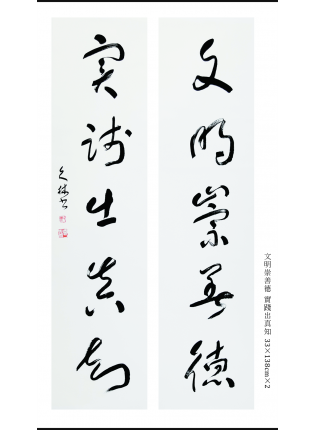 文明崇善德
實踐出真知
久林書
文明崇善德 實踐出真知 33×138cm×2